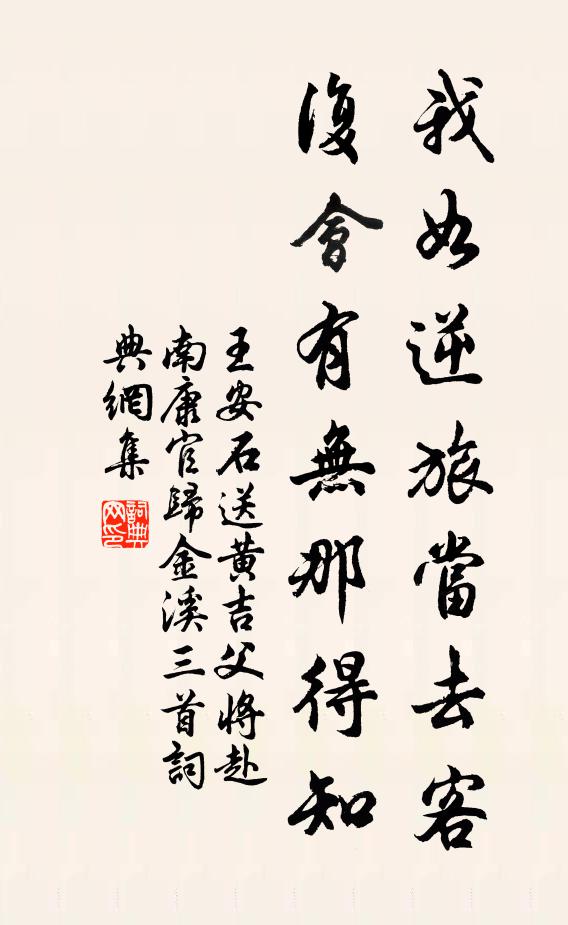 我如逆旅當去客
復會有無那得知
王安石送黄吉父將赴
南康官歸金溪三首詞
典網集
詞典
网印